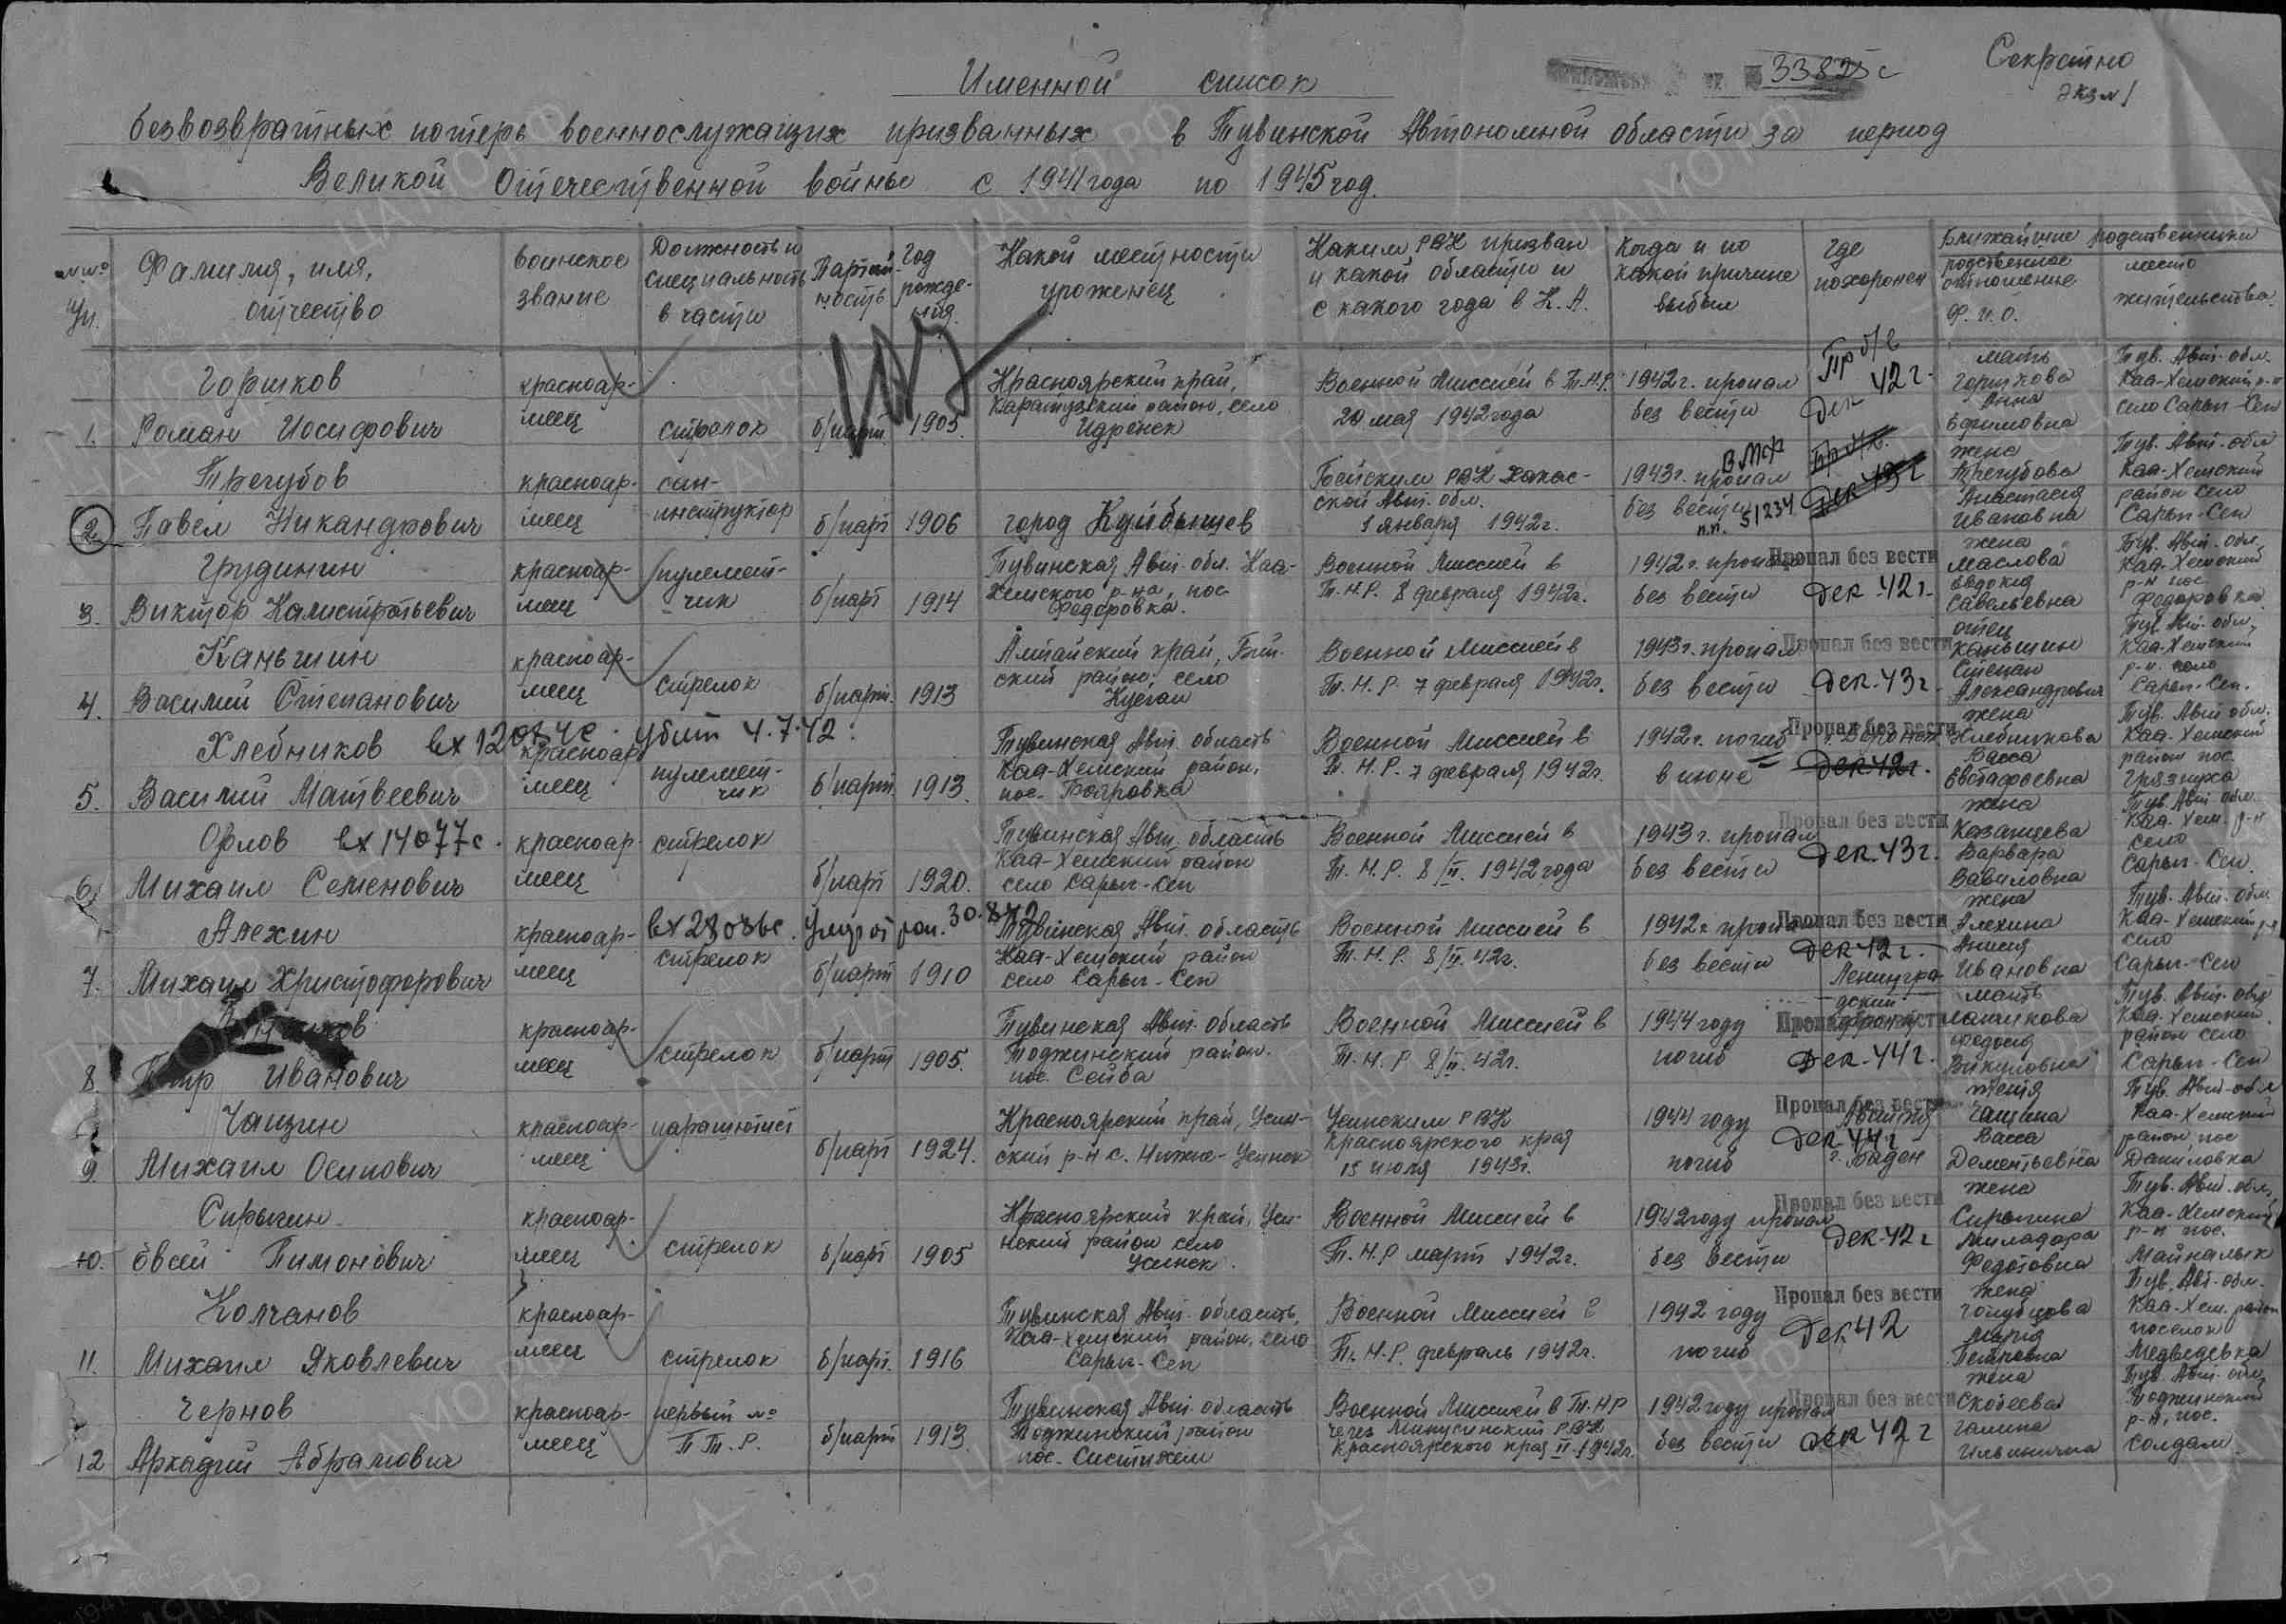 Секретно
экз №1
33825с
Именной список
безвозвратных потерь военнослужащих призванных в Тувинской Автономной области за период
Великой Отечественной войны с 1941 года по 1945 год.
№№ п/п.
Фамилия, имя, отчество
Воинское звание
Должность и специальность в части
Партийность
Год рождения.
Какой местности уроженец
Каким РВК призван и какой области и с какого года в К.А.
Когда и по какой причине выбыл
Где похоронен
Ближайшие родственники
родственное отношение Ф.И.О.
место жительства.
1. Горшков Роман Иосифович
красноармеец
стрелок
б/парт. 1905.
Красноярский край, Каратузский район, село
Военной Миссией в Т.Н.Р. 20 мая 1942 года
1942 г. пропал без вести
Пр б/в дек 42 г.
мать Горшкова Анна Ефимовна
Тув. Авт. обл. Каа-Хемский р-н село Сарыг-Сеп
2. Трегубов Павел Никандрович
красноармеец
сан-инструктор
б/парт 1906
город Куйбышев
Бейским РВК Хакасской Авт. обл. 1 января 1942 г.
1943 г. пропал без вести
п.п. 51234
дек 43 г
жена Трегубова Анастасия Ивановна
Тув. Авт. обл Каа-Хемский район село Сарыг-Сеп
3. Грудинин Виктор Калистратьевич
красноармеец
пулемет-чик
б/парт 1914
Тувинская Авт. обл. Каа-Хемского р-на, пос. Федоровка.
Военной Миссией в Т.Н.Р. 8 февраля 1942 г.
1942 г. пропал без вести
Пропал без вести
дек. 42 г.
жена Маслова Евдокия Савельевна
Тув. Авт. обл. Каа-Хемский р-н пос Федоровка
4. Каньшин Василий Степанович
красноармеец
стрелок
б/парт. 1913
Алтайский край, Бийский район, село Куеган
Военной Миссией в Т.Н.Р. 7 февраля 1942 г.
1943 г. пропал без вести
Пропал без вести
дек. 43 г.
отец Каньшин Степан Александрович
Тув. Авт. обл. Каа-Хемский р-н. село Сарыг-Сеп.
5. Хлебников Василий Матвеевич
убит 4.7.42.
красноармеец
пулемет-чик
б/парт. 1913.
Тувинская Авт. область Каа-Хемский район, пос. Бояровка
Военной Миссией в Т.Н.Р. 7 февраля 1942 г.
1942 г. погиб в июне
Пропал без вести
дек 42 г.
жена Хлебникова Васса Евстафьевна
Тув. Авт обл. Каа-Хемский район пос. Грязнуха
6. Орлов Михаил Семенович
вх 14077с.
красноармеец
стрелок
б/парт 1920.
Тувинская Авт. область Каа-Хемский район село Сарыг-Сеп
Военной Миссией в Т.Н.Р. 8/II. 1942 года
1943 г. пропал без вести
Пропал без вести
дек. 43 г.
жена Казанцева Варвара Вавиловна
Тув. Авт обл. Каа-Хем. р-н село Сарыг-Сеп.
7. Алехин Михаил Христофорович
красноармеец
стрелок
б/парт 1910
Тувинская Авт. область Каа-Хемский район село Сарыг-Сеп
Военной Миссией в Т.Н.Р. 8/II. 42 г.
1942 г. пропал без вести
Пропал без вести
дек 42 г.
жена Алехина Анисия Ивановна
Тув. Авт. обл. Каа-Хемский р-н село Сарыг-Сеп
8. Петр Иванович
красноармеец
стрелок
б/парт 1905.
Тувинская Авт. область Тоджинский район. пос. Сейба
Военной Миссией в Т.Н.Р 8/II. 42 г.
1944 году погиб
Ленинградский фронт
Пропал без вести
дек. 44 г.
мать Федосия Викуловна
Тув. Авт. обл Каа-Хемский район село Сарыг-Сеп
9 Чащин Михаил Осипович
красноармеец
парашютист
б/парт 1924.
Красноярский край, Усинский р-н с. Нижне-Усинск
Усинским РВК Красноярского края 15 июля 1943 г.
1944 году погиб
Пропал без вести
Австрия г. Баден
дек 44 г
Чащина Васса Дементьевна
Тув. Авт. обл Каа-Хемский район пос Даниловка
10. Сирыгин Евсей Тимонович
красноармеец
стрелок
б/парт 1905
Красноярский край, Усинский район село Усинск.
Военной Миссией в Т.Н.Р март 1942 г.
1942 году пропал без вести
Пропал без вести
дек-42 г
жена Сирыгина Федотовна
Тув. Авт. обл. Каа-Хемский р-н пос.
11. Колчанов Михаил Яковлевич
красноармеец
стрелок
б/парт. 1916
Тувинская Авт. область, Каа-Хемский район, село Сарыг-Сеп
Военной Миссией в Т.Н.Р. февраль 1942 г.
1942 году погиб
Пропал без вести
дек 42
жена Голубцова Мария Петровна
Тув. Авт. обл. Каа-Хем. район поселок Медведевка
12 Чернов Аркадий Абрамович
красноармеец
первый № П.Т.Р.
б/парт 1913.
Тувинская Авт. область Тоджинский район пос. Систихем
Военной Миссией в Т.Н.Р через Минусинский РВК Красноярского края II-1942 г.
1942 году пропал без вести
Пропал без вести
дек 42 г
жена Скобеева Галина Ильинична
Тув. Авт. обл. Тоджинский р-н, пос. Солдам